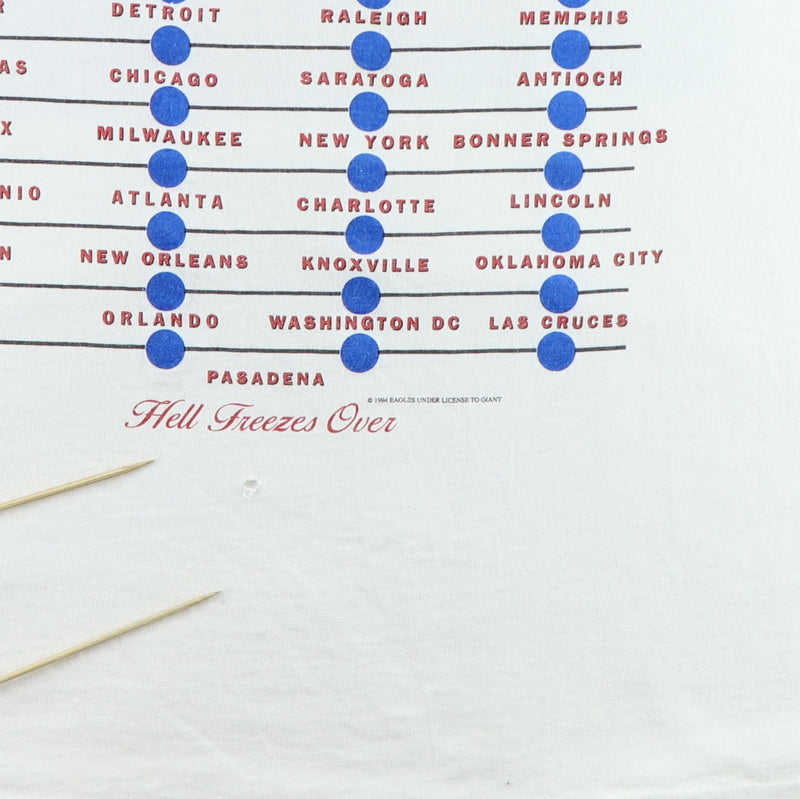 DETROIT RALEIGH MEMPHIS
AS CHICAGO SARATOGA ANTIOCH
X MILWAUKEE NEW YORK BONNER SPRINGS
NIO ATLANTA CHARLOTTE LINCOLN
N NEW ORLEANS KNOXVILLE OKLAHOMA CITY
ORLANDO WASHINGTON DC LAS CRUCES
PASADENA
© 1994 EAGLES UNDER LICENSE TO GIANT
Hell Freezes Over